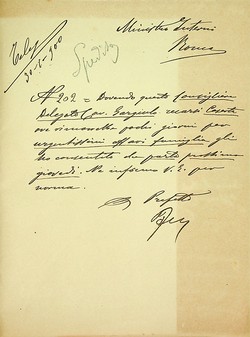 Ministro Interni
Roma
30-1-900
Spedito
N 202 = Dovendo questo Consigliere
Delegato Cav. Gargiulo recarsi Caserta
ove rimarrebbe pochi giorni per
urgentissimi affari famiglia gli
ho consentito che parta prossimo
giovedì. Ne informo V. E. per
norma.
Prefetto